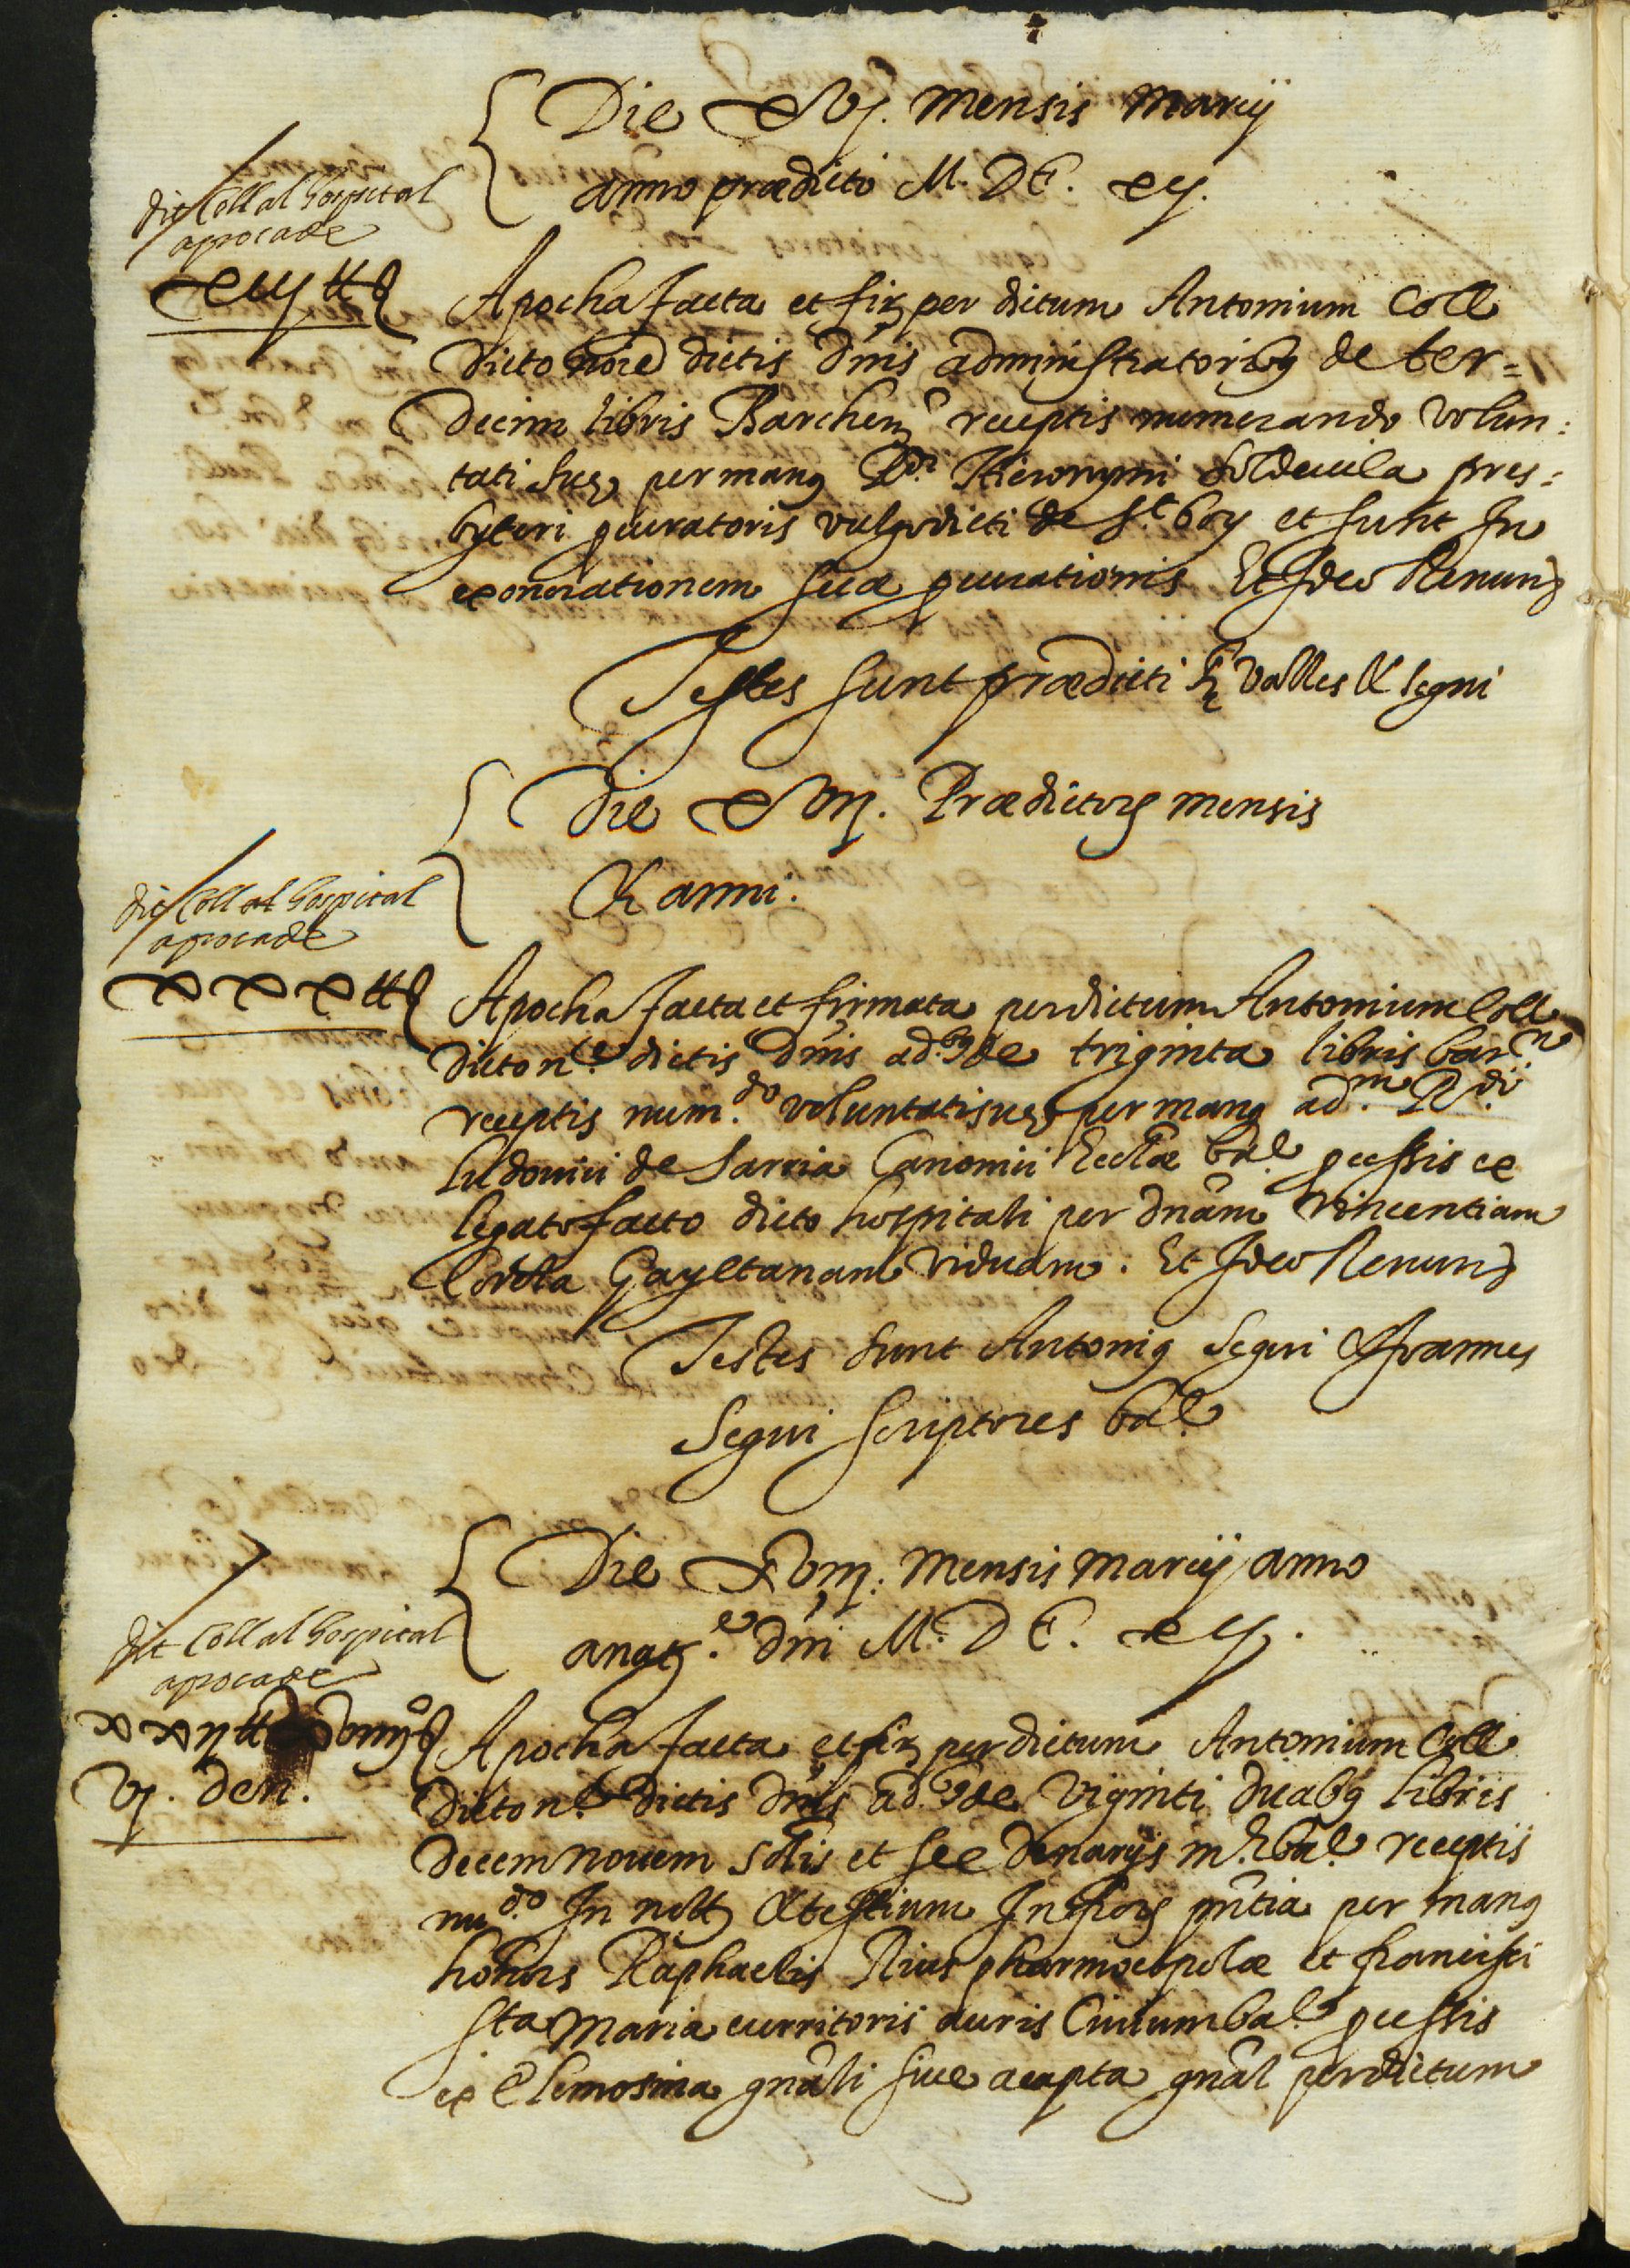 Die xvj. mensis marcij
anno prædicto M. DC. xij.
dit Coll al hospital
apocade
xiij ll
Apocha facta et fir per dictum Antonium Coll
dicto noīe dictis dn̄is administratorib9 de ter=
decim libris Barchen receptis numerando volun:
tati suę per man9 Rdi Hieronymi Soldeuila pres:
byteri procuratoris vulgo dicti de St boy et sunt In
exonerationem suæ procurationis Et Ideo Renun
Testes sunt prædicti valles & segui
Die xvij. Prædictors mensis
& anni.
dit Coll al hospital
apocade
xxx ll
Apocha facta et firmata per dictum Antonium Coll
dicto ne dictis dn̄is ad.b9 de triginta libris barn
receptis num.do voluntati suę per man9 ad.m Rdi
Ludouici de Sarria Canonici Ecclæ bāl. pcessis ex
legato facto dicto hospitali per dnām Vincentiam
Gayetanam viduam. Et Ideo Renun
Testes sunt Antoni9 Segui & Joannes
Segui scriptores bāl.
Die xviij. mensis marcij anno
a nat.e dn̄i M. DC. xij.
dit Coll al hospital
apocade
xxij ll xviiij
vj. den.
Apocha facta et fir per dictum Antonium Coll
dicto ne dictis dn̄is ad.b9 de viginti duab9 libris
decem nouem solis et sex denarijs m. bāl. receptis
nu.do In not & testium Infrors pn̄tia per man9
honors Raphaelis Rius pharmocopolæ et francisci
sta Maria curritoris auris Ciuium bāl. pcessis
ex Elemosina gnāli siue acapta gnāl per dictum